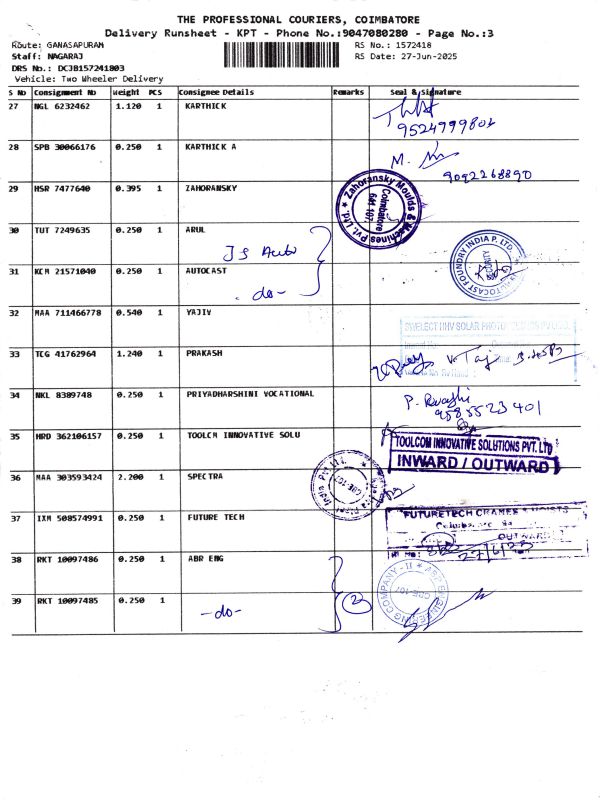 THE PROFESSIONAL COURIERS, COIMBATORE
Delivery Runsheet - KPT - Phone No.:9047080280 - Page No.:3
Route: GANASAPURAM RS No.: 1572418
Staff: NAGARAJ RS Date: 27-Jun-2025
DRS No.: DCJB157241803
Vehicle: Two Wheeler Delivery
S No Consignment No Weight PCS Consignee Details Remarks Seal & Signature
27 NGL 6232462 1.120 1 KARTHICK
9524999801
28 SPB 30066176 0.250 1 KARTHICK A
M.
9092268890
29 HSR 7477640 0.395 1 ZAHORANSKY
Zahoransky Moulds & Machines Pvt. Ltd.
Coimbatore
641 107.
30 TUT 7249635 0.250 1 ARUL
JS Auto
31 KCM 21571040 0.250 1 AUTOCAST
-do-
AUTOCAST FOUNDRY INDIA P. LTD.
32 MAA 711466778 0.540 1 YAJIV
SWELECT HHV SOLAR
33 TCG 41762964 1.240 1 PRAKASH
34 NKL 8389748 0.250 1 PRIYADHARSHINI VOCATIONAL
P.
9585523401
35 HRD 362106157 0.250 1 TOOLCM INNOVATIVE SOLU
TOOLCOM INNOVATIVE SOLUTIONS PVT. LTD
INWARD / OUTWARD
36 MAA 303593424 2.200 1 SPECTRA
India Pvt Ltd.
CBE-107
37 IXM 508574991 0.250 1 FUTURE TECH
FUTURETECH CRANES & HOISTS
OUTWARD
38 RKT 10097486 0.250 1 ABR ENG
39 RKT 10097485 0.250 1
-do-
2
ENGINEERING COMPANY - II
CBE-107